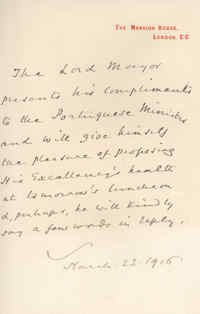 THE MANSION HOUSE,
LONDON, E.C.
The Lord Mayor
presents his compliments
to the Portuguese Minister
and will give himself
the pleasure of proposing
His Excellency's health
at tomorrow's luncheon
&, perhaps, he will kindly
say a few words in reply.
March 22. 1916